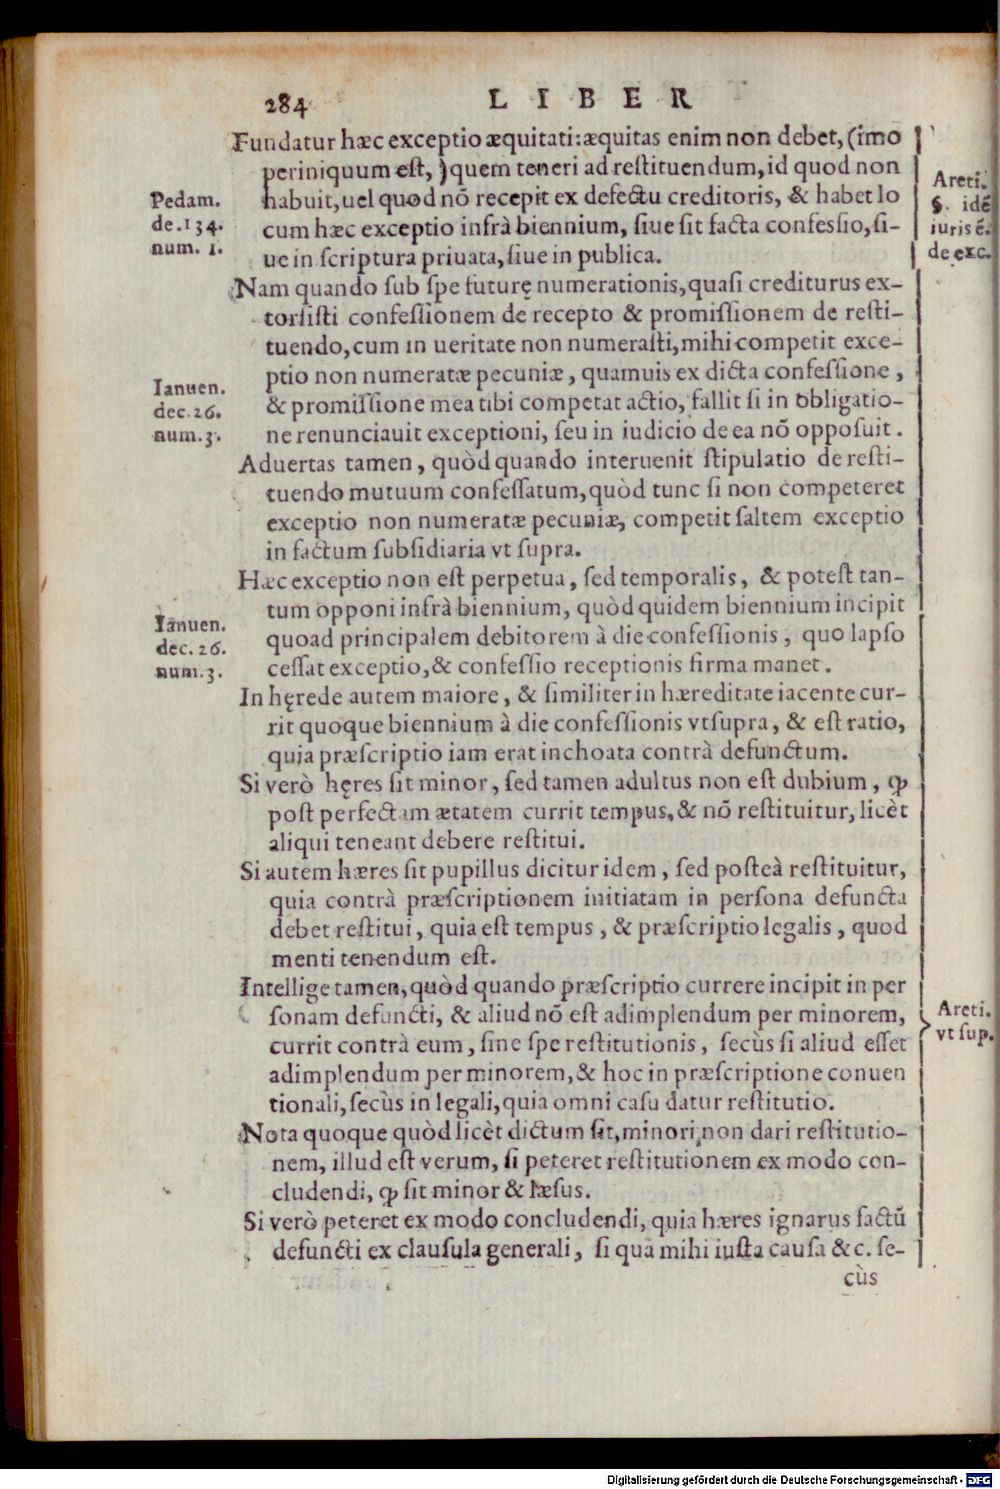 284 LIBER
Fundatur hæc exceptio æquitati: æquitas enim non debet, (imo
periniquum est, ) quem teneri ad restituendum, id quod non
habuit, uel quod nō recepit ex defectu creditoris, & habet lo
cum hæc exceptio infrà biennium, siue sit facta confessio, si-
ue in scriptura priuata, siue in publica.
Areti.
§. idē
iuris ē.
de exc.
Pedam.
de. 134.
num. 1.
Nam quando sub spe futurę numerationis, quasi crediturus ex-
torsisti confessionem de recepto & promissionem de resti-
tuendo, cum in ueritate non numerasti, mihi competit exce-
ptio non numeratæ pecuniæ, quamuis ex dicta confessione,
& promissione mea tibi competat actio, fallit si in obligatio-
ne renunciauit exceptioni, seu in iudicio de ea nō opposuit.
Ianuen.
dec. 26.
num. 3.
Aduertas tamen, quòd quando interuenit stipulatio de resti-
tuendo mutuum confessatum, quòd tunc si non competeret
exceptio non numeratæ pecuniæ, competit saltem exceptio
in factum subsidiaria vt supra.
Hæc exceptio non est perpetua, sed temporalis, & potest tan-
tum opponi infrà biennium, quòd quidem biennium incipit
quoad principalem debitorem à die confessionis, quo lapso
cessat exceptio, & confessio receptionis firma manet.
Ianuen.
dec. 26.
num. 3.
In hęrede autem maiore, & similiter in hæreditate iacente cur-
rit quoque biennium à die confessionis vt supra, & est ratio,
quia præscriptio iam erat inchoata contrà defunctum.
Si verò hęres sit minor, sed tamen adultus non est dubium, ꝙ
post perfectam ætatem currit tempus, & nō restituitur, licèt
aliqui teneant debere restitui.
Si autem hæres sit pupillus dicitur idem, sed posteà restituitur,
quia contrà præscriptionem initiatam in persona defuncta
debet restitui, quia est tempus, & præscriptio legalis, quod
menti tenendum est.
Intellige tamen, quòd quando præscriptio currere incipit in per
sonam defuncti, & aliud nō est adimplendum per minorem,
currit contrà eum, sine spe restitutionis, secùs si aliud esset
adimplendum per minorem, & hoc in præscriptione conuen
tionali, secùs in legali, quia omni casu datur restitutio.
Areti.
vt sup.
Nota quoque quòd licèt dictum sit, minori non dari restitutio-
nem, illud est verum, si peteret restitutionem ex modo con-
cludendi, ꝙ sit minor & læsus.
Si verò peteret ex modo concludendi, quia hæres ignarus factū
defuncti ex clausula generali, si qua mihi iusta causa &c. se-
cùs
Digitalisierung gefördert durch die Deutsche Forschungsgemeinschaft - DFG